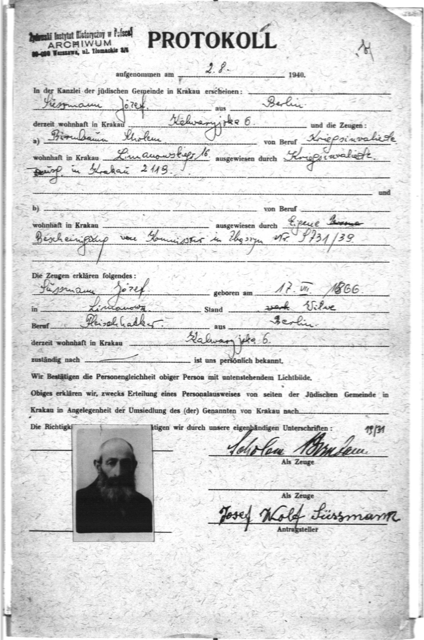 Żydowski Instytut Historyczny w Polsce
ARCHIWUM
Warszawa, ul. Tłomackie 3/5
PROTOKOLL
aufgenommen am 2. 8. 1940.
In der Kanzlei der jüdischen Gemeinde in Krakau erscheinen :
Süssmann Józef aus Berlin
derzeit wohnhaft in Krakau Kalwaryjska 6 und die Zeugen :
a) Birnbaum Scholem von Beruf Kriegsinvalide
wohnhaft in Krakau Limanowskiego 16 ausgewiesen durch Kriegsinvalide
in Krakau 2119.
und
b) von Beruf
wohnhaft in Krakau ausgewiesen durch Eigene
Bescheinigung vom Kommissar in Nr. 5731/39
Die Zeugen erklären folgendes :
Süssmann Józef geboren am 17. VII 1866
in Limanowa Stand Witwe
Beruf aus Berlin
derzeit wohnhaft in Krakau Kalwaryjska 6.
zuständig nach ist uns persönlich bekannt.
Wir Bestätigen die Personengleichheit obiger Person mit untenstehendem Lichtbilde.
Obiges erklären wir, zwecks Erteilung eines Personalausweises von seiten der Jüdischen Gemeinde in
Krakau in Angelegenheit der Umsiedlung des (der) Genannten von Krakau nach
Die Richtigk tätigen wir durch unsere eigenhändigen Unterschriften :
Scholem Birnbaum
Als Zeuge
Als Zeuge
Josef Wolf Süssmann
Antragsteller